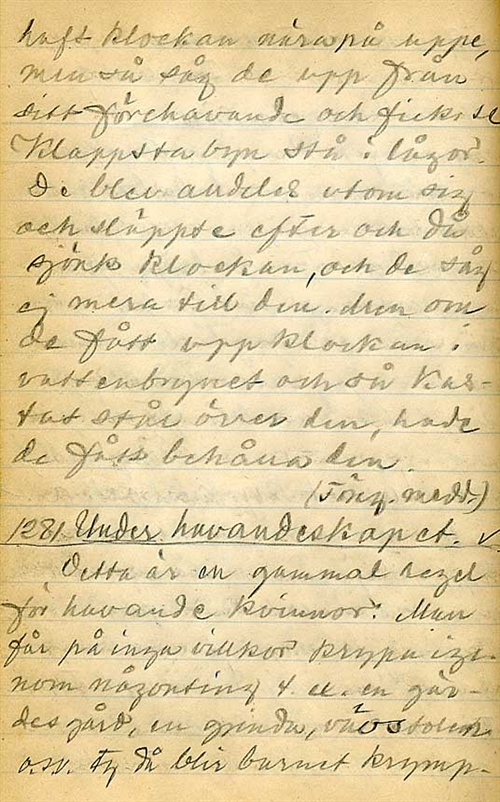 haft klockan nära på uppe,
men så såg de upp från
sitt förehavande och fick se
Klappsta byn stå i lågor.
De blev aldeles utom sig
och släppte efter och då
sjönk klockan, och de såg
ej mera till den. Men om
de fått upp klockan i
vattenbrynet och så kas-
tat stål över den, hade
de fått behålla den.
(Föreg. medd.)
1281. Under havandeskapet. ✓
Detta är en gammal regel
för havande kvinnor: Man
får på inga villkor krypa ige-
nom någonting t. ex. en gär-
des gård, en grinda, vävstolen
o.s.v. Ty då blir barnet krymp-